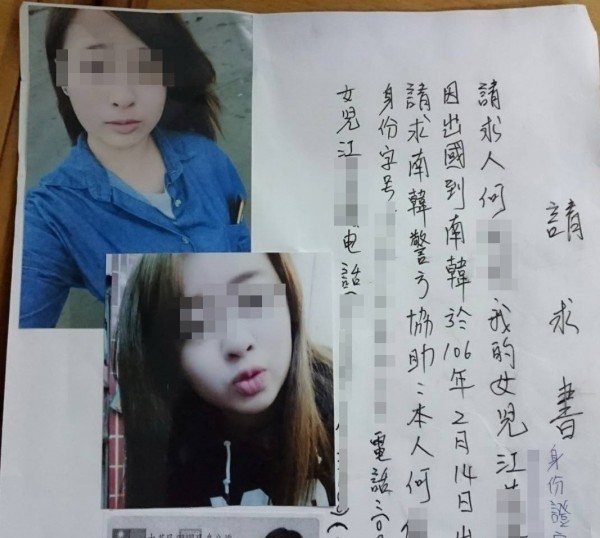 請求書
身份證
請求人何 我的女兒江
因出國到南韓於106年2月14日出
請求南韓警方協助:本人何
身份字号 電話:
女兒江 電話(